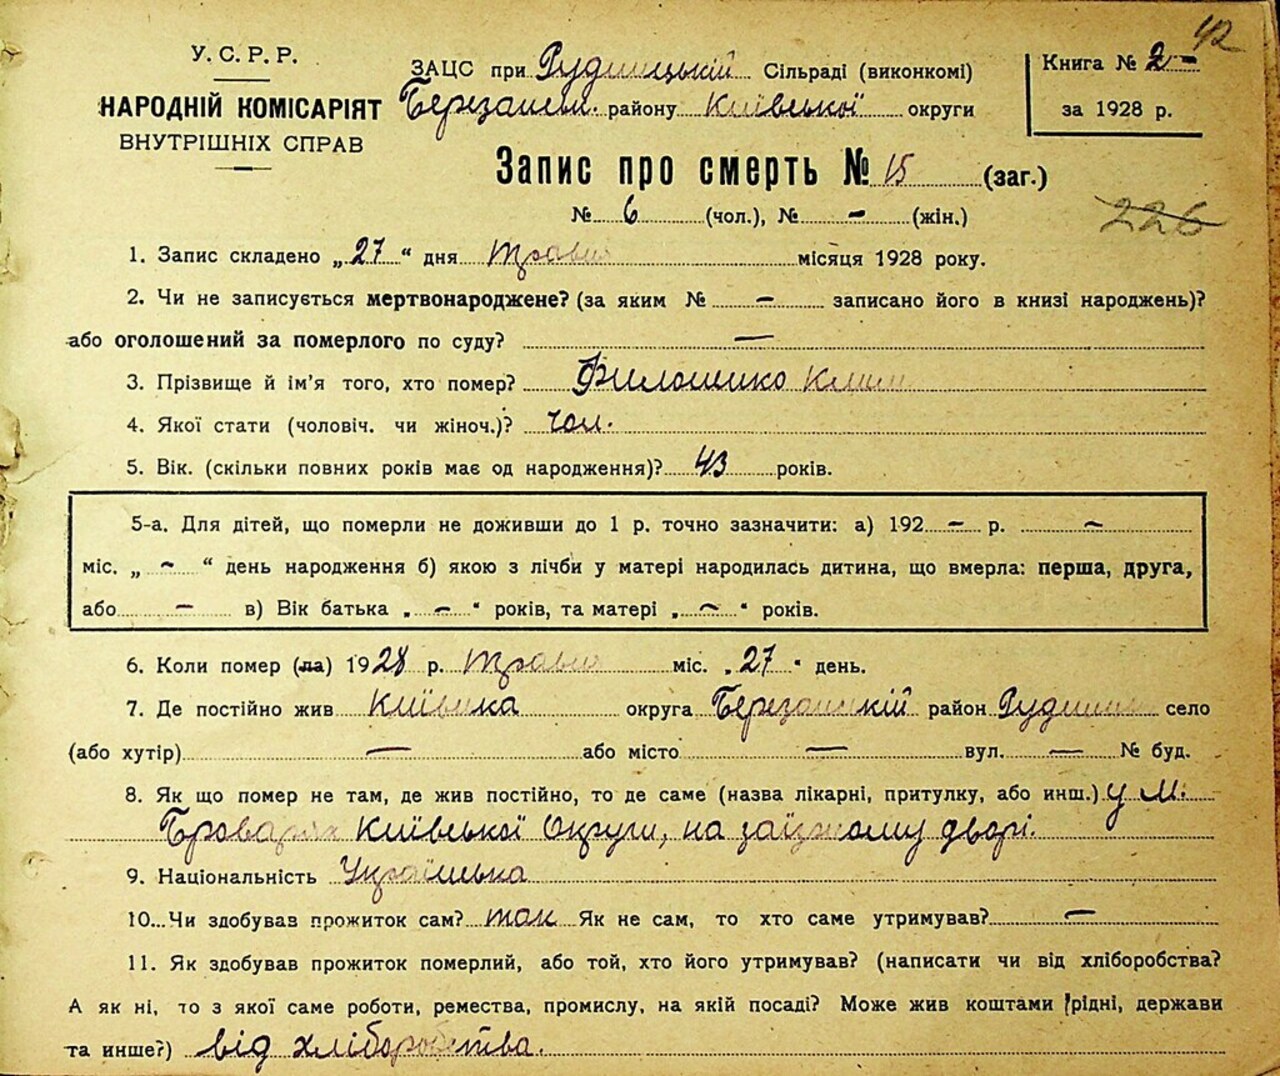 42
У. С. Р. Р.
НАРОДНІЙ КОМІСАРІЯТ
ВНУТРІШНІХ СПРАВ
ЗАЦС при Рудницькій Сільраді (виконкомі)
Березанськ. району Київської округи
Книга № 2
за 1928 р.
Запис про смерть № 15 (заг.)
№ 6 (чол.), № – (жін.)
226
1. Запис складено „27“ дня травня місяця 1928 року.
2. Чи не записується мертвонароджене? (за яким № – записано його в книзі народжень)?
або оголошений за померлого по суду? —
3. Прізвище й ім'я того, хто помер? Филоненко Клим
4. Якої стати (чоловіч. чи жіноч.)? чол.
5. Вік. (скільки повних років має од народження)? 43 років.
5-а. Для дітей, що померли не доживши до 1 р. точно зазначити: а) 192 – р. –
міс. „ – “ день народження б) якою з лічби у матері народилась дитина, що вмерла: перша, друга,
або – в) Вік батька „ – “ років, та матері „ – “ років.
6. Коли помер (ла) 1928 р. травня міс. „27“ день.
7. Де постійно жив Київська округа Березанський район село
(або хутір) — або місто — вул. — № буд.
8. Як що помер не там, де жив постійно, то де саме (назва лікарні, притулку, або инш.) у м.
Броварях Київської Округи, на заїзжому дворі.
9. Національність Українська
10. Чи здобував прожиток сам? так Як не сам, то хто саме утримував? —
11. Як здобував прожиток померлий, або той, хто його утримував? (написати чи від хліборобства?
А як ні, то з якої саме роботи, ремества, промислу, на якій посаді? Може жив коштами рідні, держави
та инше?) від хліборобства.